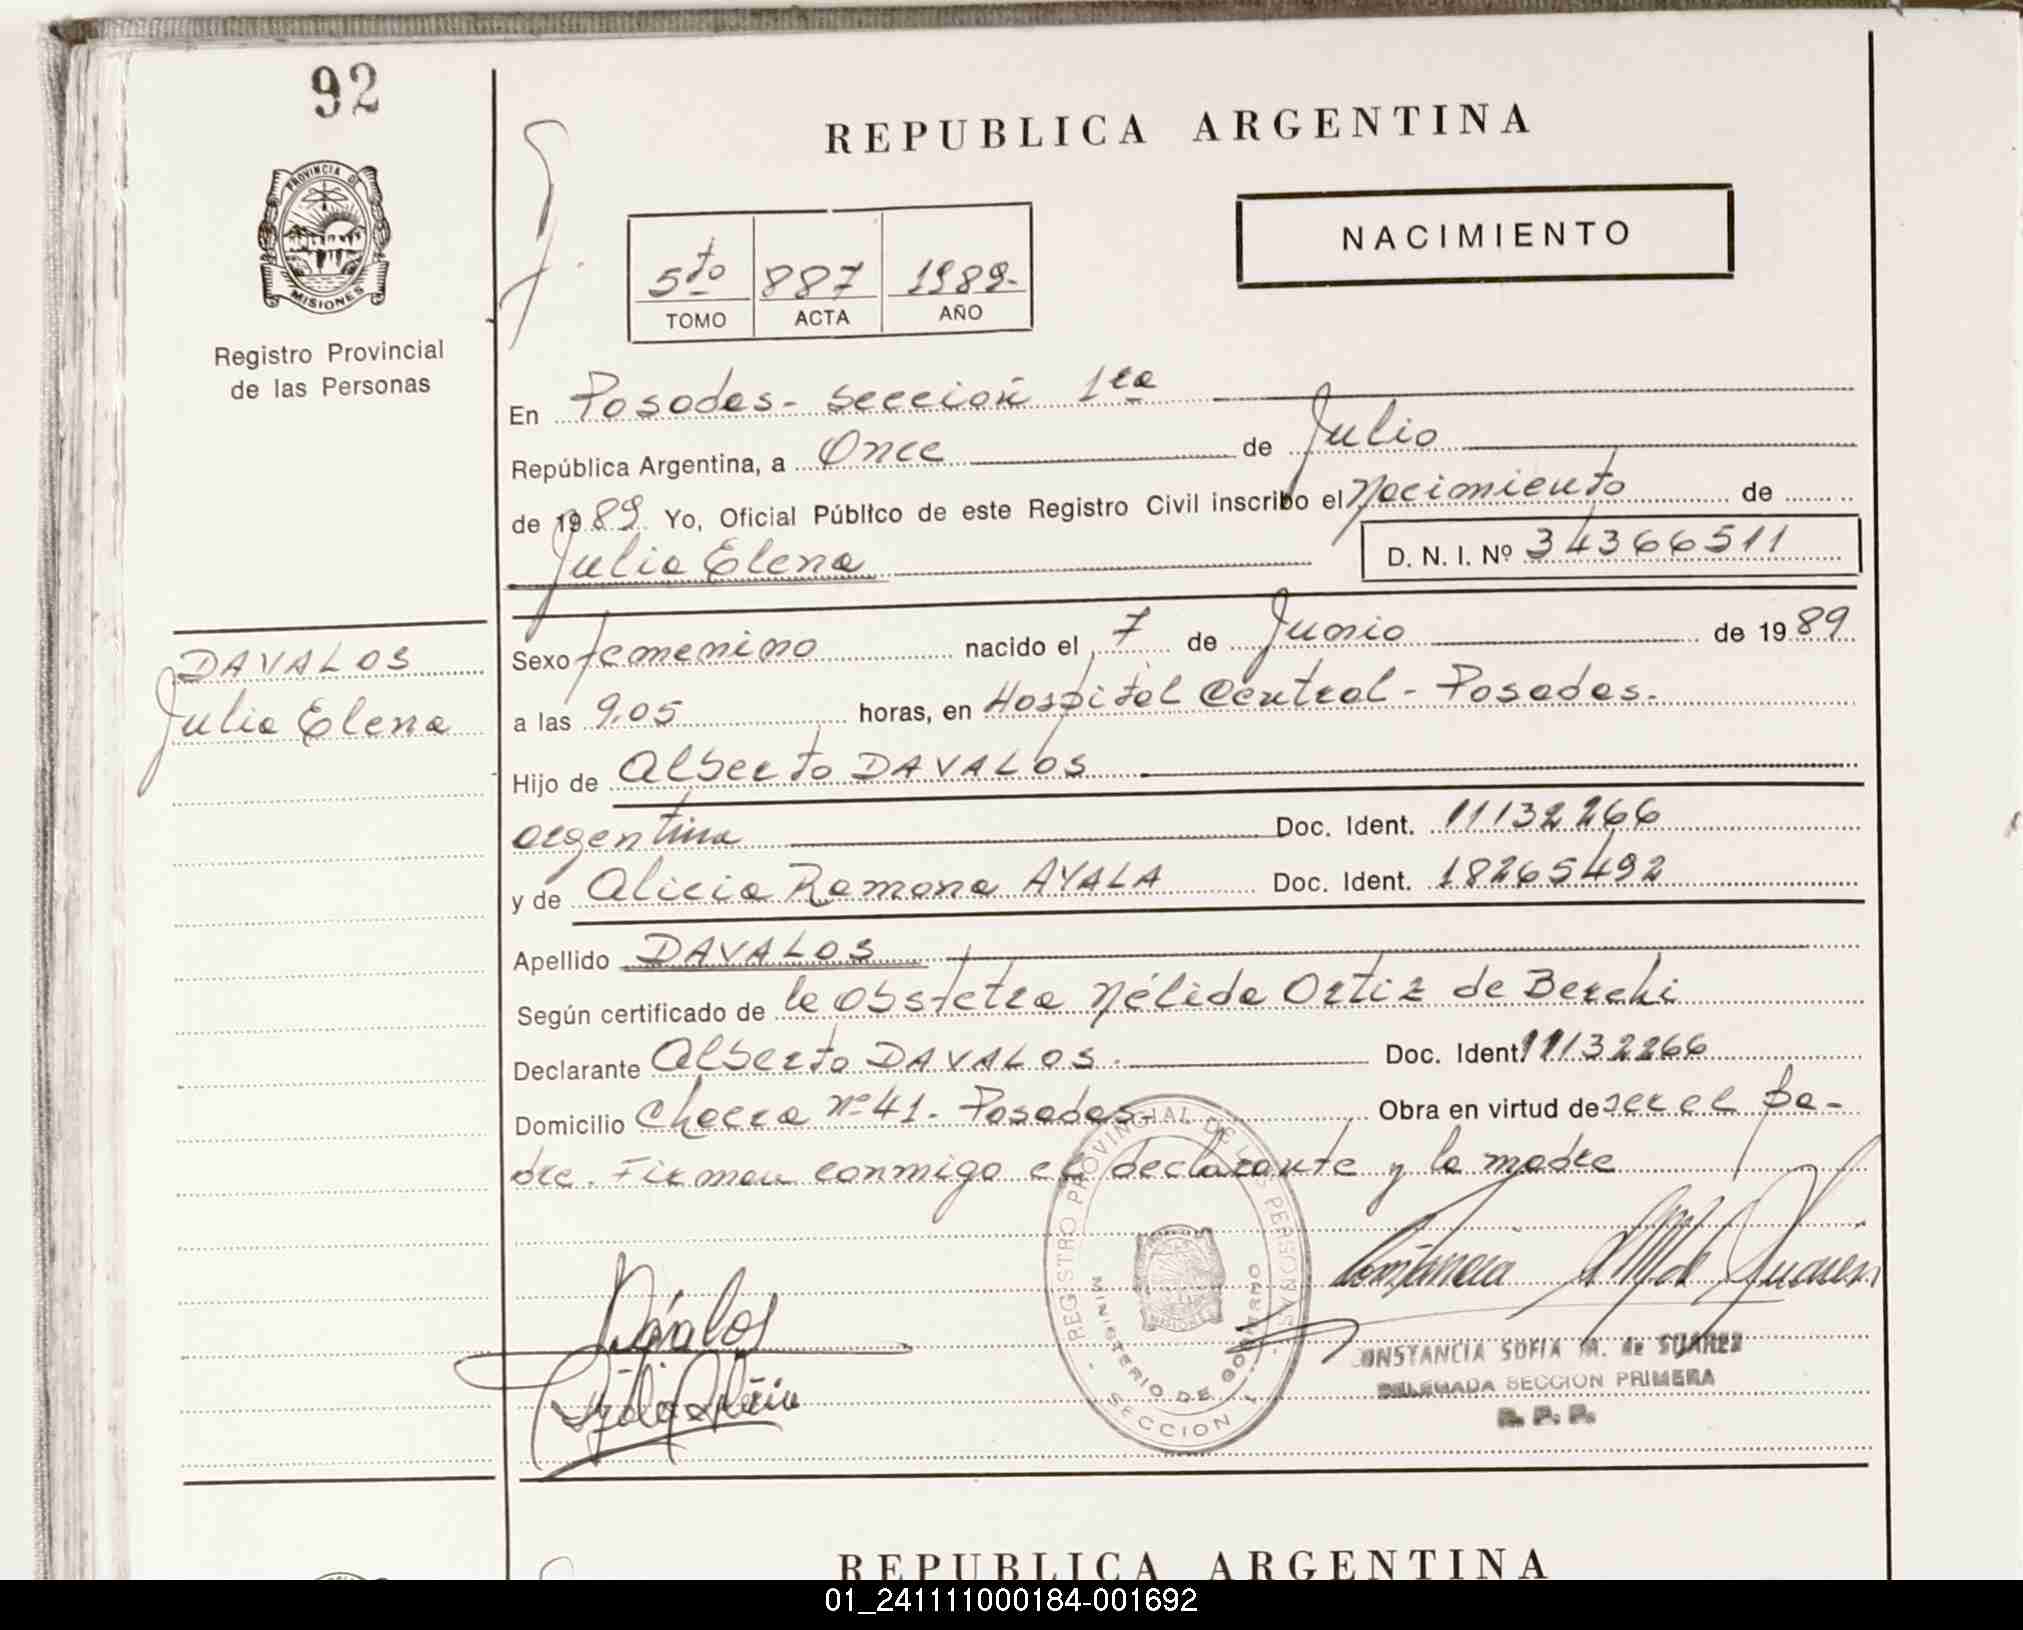 92
PROVINCIA DE
MISIONES
Registro Provincial
de las Personas
REPUBLICA ARGENTINA
NACIMIENTO
5to 887 1989.
TOMO ACTA AÑO
En Posadas - Sección 1ra
República Argentina, a Once de Julio
de 1989 Yo, Oficial Público de este Registro Civil inscribo el Nacimiento de
Julia Elena D. N. I. Nº 34366511
DAVALOS
Julia Elena
Sexo femenino nacido el 7 de Junio de 1989
a las 9.05 horas, en Hospital Central - Posadas.
Hijo de Alberto DAVALOS
argentina Doc. Ident. 11132266
y de Alicia Ramona AYALA Doc. Ident. 18265492
Apellido DAVALOS
Según certificado de la Obstetra Nélida Ortiz de Berchi
Declarante Alberto DAVALOS. Doc. Ident 11132266
Domicilio Chacra nº 41 - Posadas - Obra en virtud de ser el pa-
dre. Firman conmigo el declarante y la madre
REGISTRO PROVINCIAL DE LAS PERSONAS
MINISTERIO DE GOBIERNO
- SECCION 1 -
Dávalos
CONSTANCIA SOFIA M. de SUAREZ
DELEGADA SECCION PRIMERA
R. P. P.
REPUBLICA ARGENTINA
01_241111000184-001692